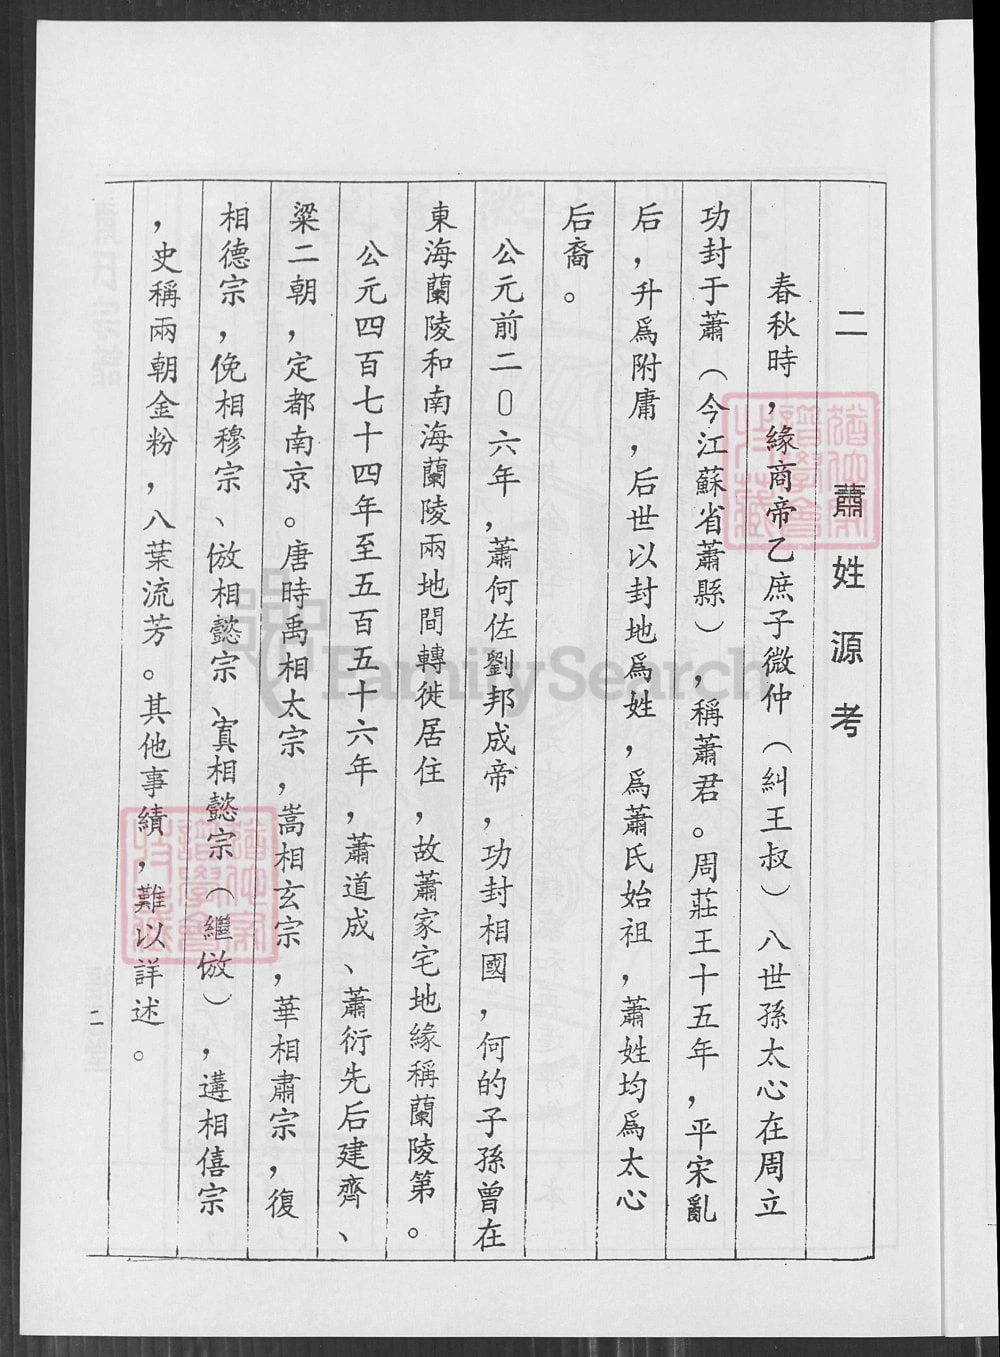 二 蕭姓源考
春秋時，緣商帝乙庶子微仲（糾王叔）八世孫太心在周立
功封于蕭（今江蘇省蕭縣），稱蕭君。周莊王十五年，平宋亂
后，升爲附庸，后世以封地爲姓，爲蕭氏始祖，蕭姓均爲太心
后裔。
公元前二0六年，蕭何佐劉邦成帝，功封相國，何的子孫曾在
東海蘭陵和南海蘭陵兩地間轉徙居住，故蕭家宅地緣稱蘭陵第。
公元四百七十四年至五百五十六年，蕭道成、蕭衍先后建齊、
梁二朝，定都南京。唐時禹相太宗，嵩相玄宗，華相肅宗，復
相德宗，俛相穆宗、倣相懿宗、寘相懿宗（繼倣），遘相僖宗
，史稱兩朝金粉，八葉流芳。其他事績，難以詳述。
二
FamilySearch